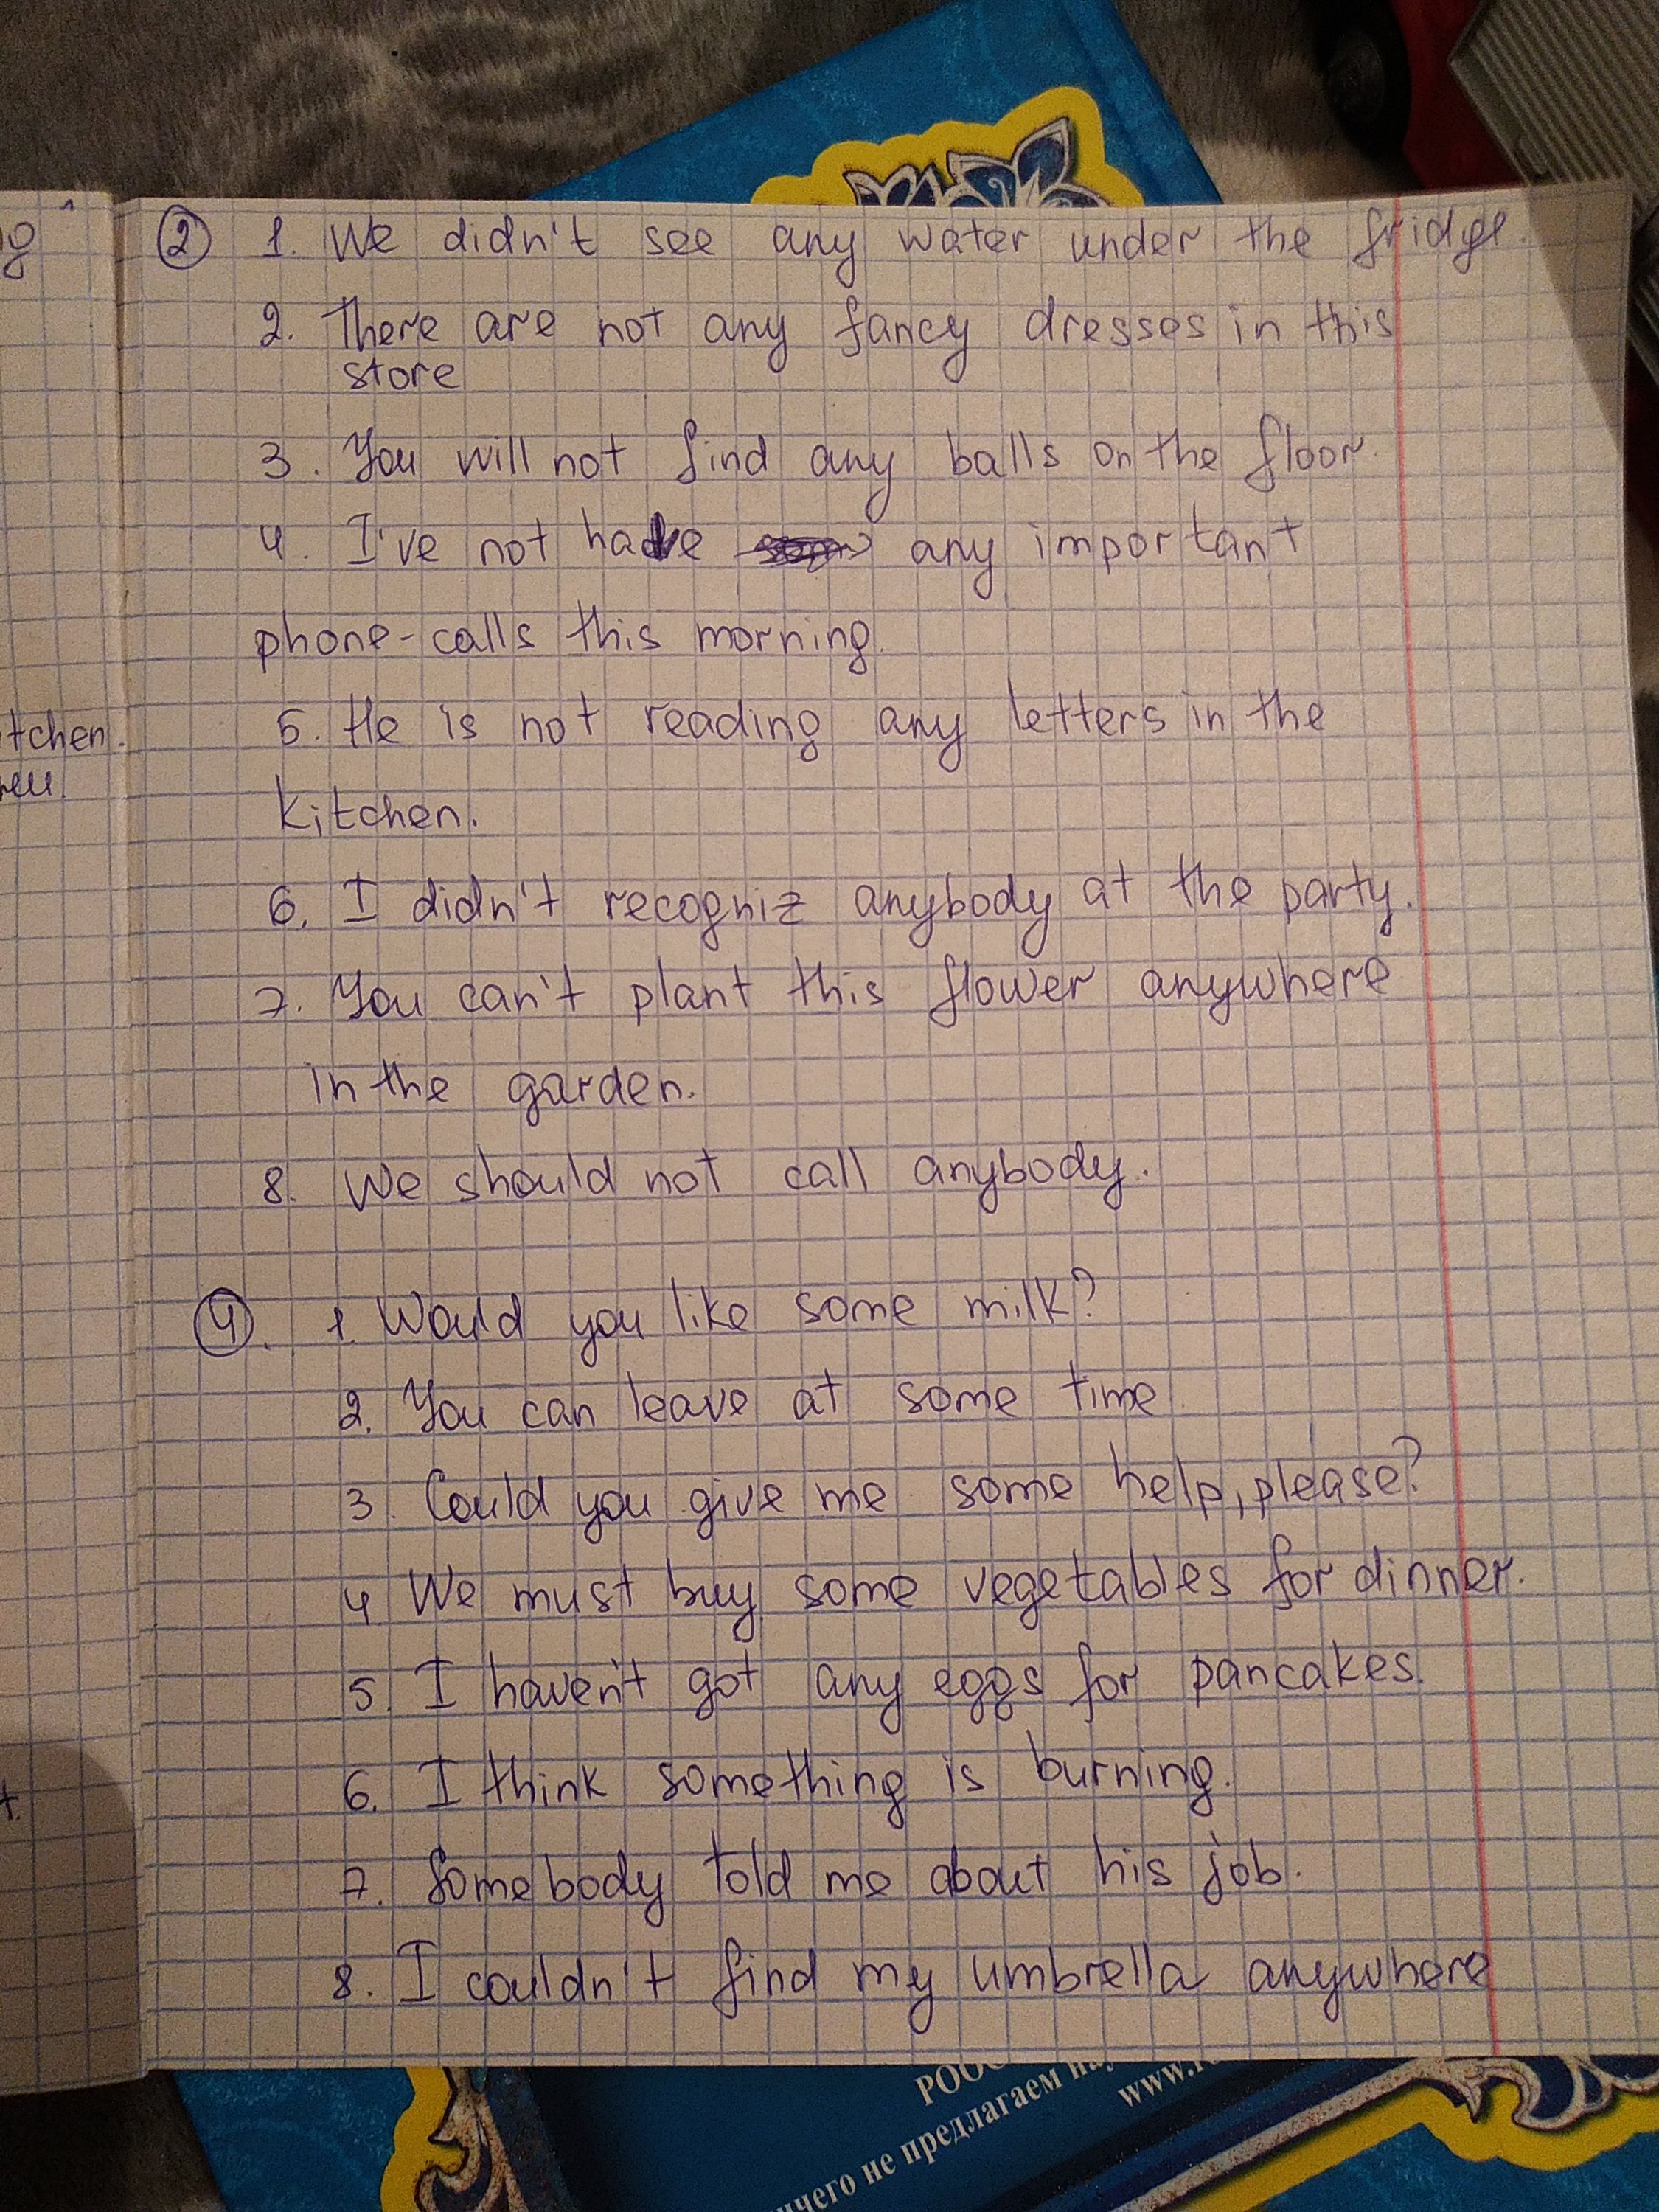 ② 1. We didn't see any water under the fridge.
2. There are not any fancy dresses in this
store
3. You will not find any balls on the floor.
4. I've not have any important
phone-calls this morning.
5. He is not reading any letters in the
kitchen.
6. I didn't recogniz anybody at the party.
7. You can't plant this flower anywhere
in the garden.
8. We should not call anybody.
④. 1. Would you like some milk?
2. You can leave at some time.
3. Could you give me some help, please?
4 We must buy some vegetables for dinner.
5. I haven't got any eggs for pancakes.
6. I think something is burning.
7. Somebody told me about his job.
8. I couldn't find my umbrella anywhere
tchen.
t.
РООС
ничего не предлагаем
www.